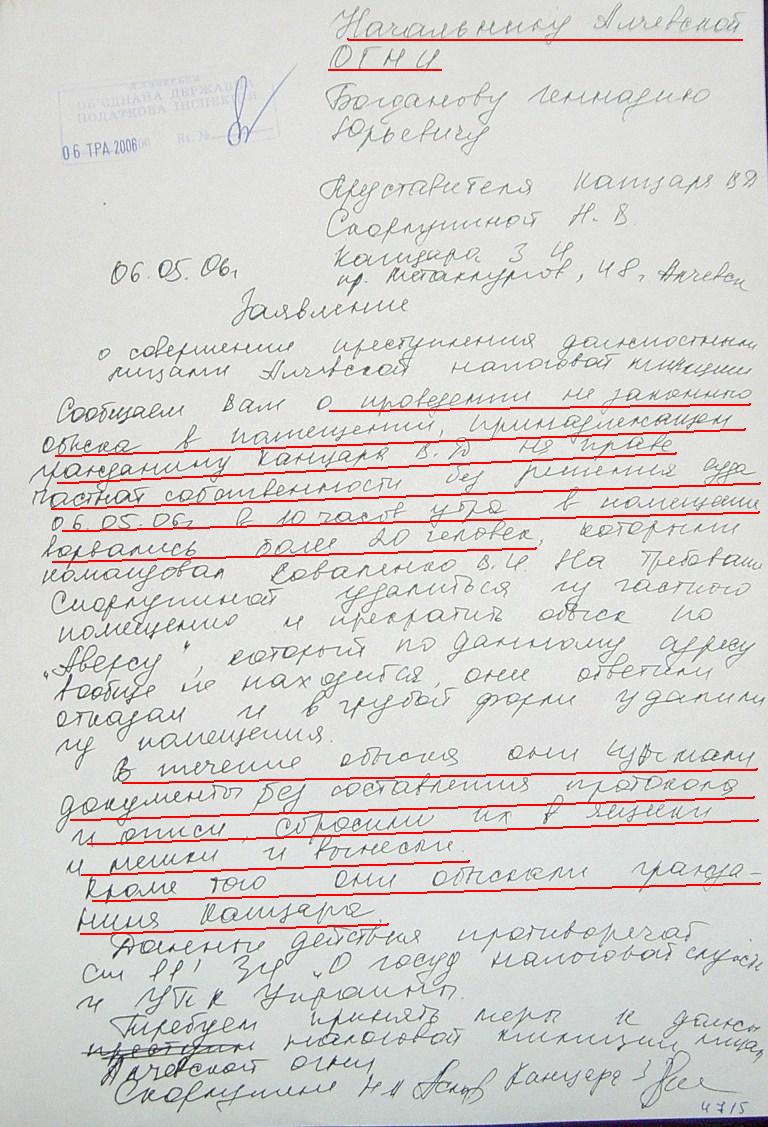 Начальнику Алчевской
ОГНИ
ОБ'ЄДНАНА ДЕРЖАВНА
ПОДАТКОВА ІНСПЕКЦІЯ
06 ТРА 2006
Вх. №
Богданову Геннадию
Юрьевичу
Представителя Канцара ВД
Скорлупиной Н. В
Канцара З И
пр. Металлургов, 48 г. Алчевск
06.05.06г
Заявление
о совершении преступления должностными
лицами Алчевской налоговой милиции
Сообщаем Вам о проведении не законного
обыска в помещении, принадлежащем
гражданину Канцара В.Д на праве
частной собственности без решения суда
06.05.06г в 10 часов утра в помещение
ворвались более 20 человек, которыми
командовал Коваленко В.И. На требования
Скорлупиной удалиться из частного
помещению и прекратить обыск по
"Аверсу", который по данному адресу
вообще не находится, они ответили
отказам и в грубой форми удалили
из помещения.
В течение обыска они изымали
документы без составления протокола
и описи, сбросили их в ящики
и мешки и вынесли.
Кроме того они обыскали гражда-
нина Канцара.
Данные действия противоречат
ст 11' ЗУ "О госуд налоговой службе
и УПК Украины.
Требуем принять меры к должн
налоговой милиции лицам
Алчевской огни
Скорлупина Канцара З
47/5